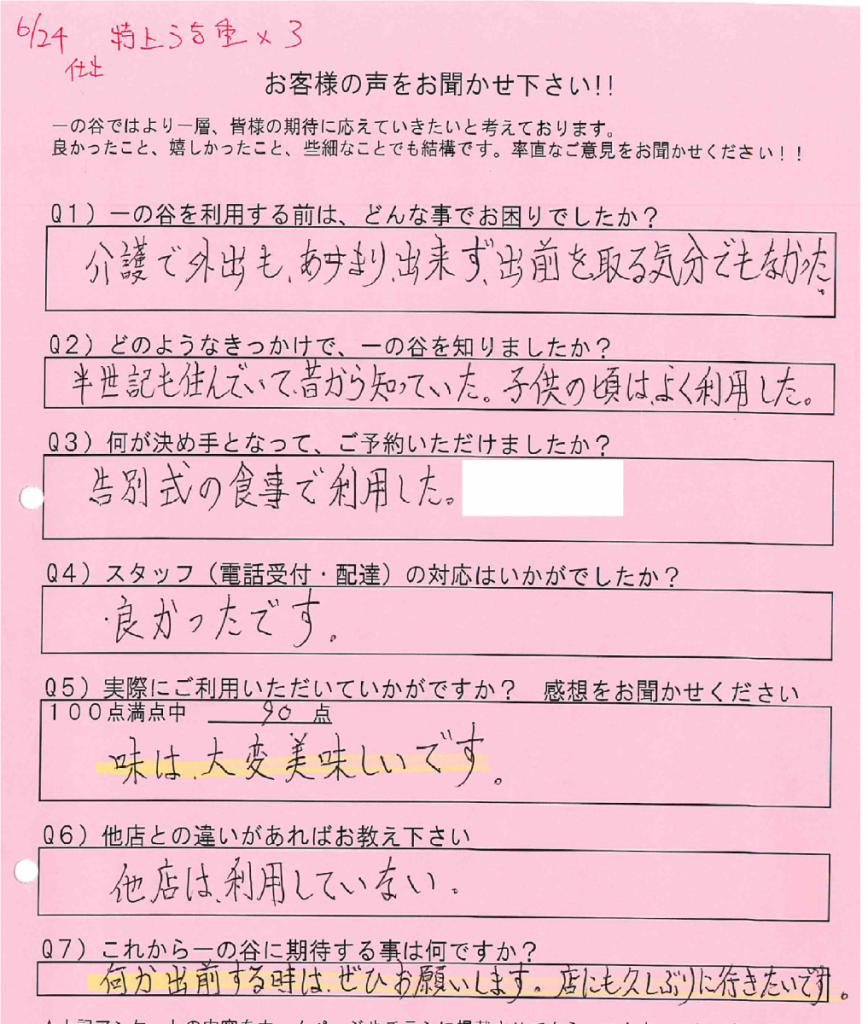 6/24 特上うな重×3
仕出
お客様の声をお聞かせ下さい!!
一の谷ではより一層、皆様の期待に応えていきたいと考えております。
良かったこと、嬉しかったこと、些細なことでも結構です。率直なご意見をお聞かせください！！
Q1）一の谷を利用する前は、どんな事でお困りでしたか？
介護で外出も、あまり、出来ず、出前を取る気分でもなかった。
Q2）どのようなきっかけで、一の谷を知りましたか？
半世記も住んでいて、昔から知っていた。子供の頃は、よく利用した。
Q3）何が決め手となって、ご予約いただけましたか？
告別式の食事で利用した。
Q4）スタッフ（電話受付・配達）の対応はいかがでしたか？
良かったです。
Q5）実際にご利用いただいていかがですか？ 感想をお聞かせください
100点満点中 90 点
味は、大変美味しいです。
Q6）他店との違いがあればお教え下さい
他店は、利用していない。
Q7）これから一の谷に期待する事は何ですか？
何か出前する時は、ぜひお願いします。店にも久しぶりに行きたいです。